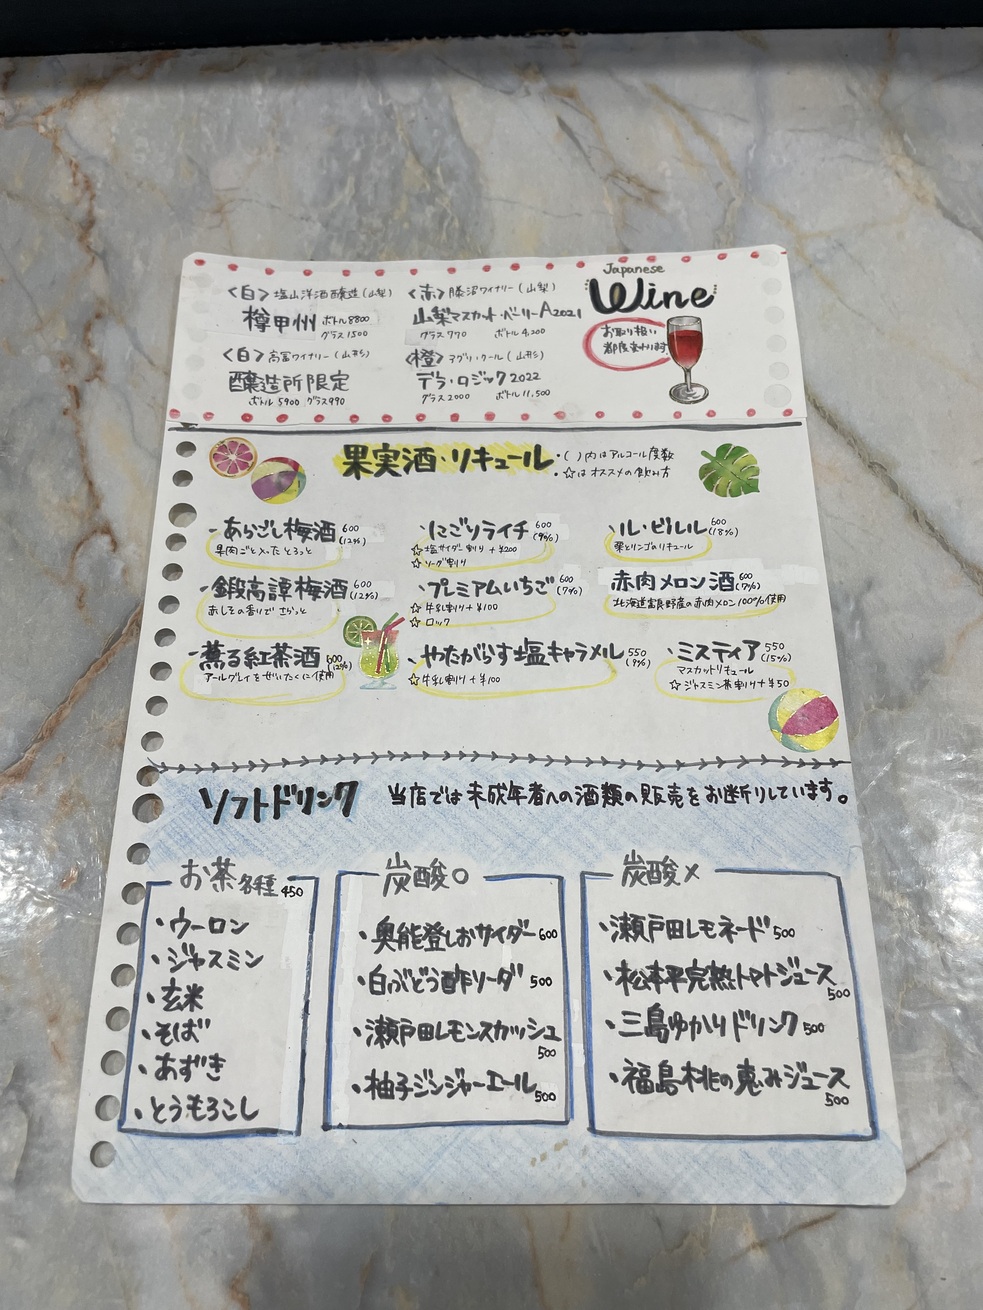 Japanese
Wine
お取り扱い
都度変わります
〈白〉塩山洋酒醸造(山梨)
樽甲州 ボトル8800
グラス1500
〈赤〉勝沼ワイナリー(山梨)
山梨マスカット・ベーリーA2021
グラス770 ボトル4,200
〈白〉高畠ワイナリー(山形)
醸造所限定
ボトル5900 グラス990
〈橙〉(山形)
デラ・ロジック2022
グラス2000 ボトル11,500
果実酒・リキュール
・( )内はアルコール度数
・☆はオススメの飲み方
・あらごし梅酒 600
(12%)
果肉ごと入ったとろっと
・にごりライチ 600
(9%)
☆塩サイダー割り+¥200
☆ソーダ割り
・ル・ビルル 600
(18%)
栗とリンゴのリキュール
・鍛高譚梅酒 600
(12%)
赤しその香りでさらっと
・プレミアムいちご 600
(7%)
☆牛乳割り+¥100
☆ロック
赤肉メロン酒 600
(7%)
北海道富良野産の赤肉メロン100%使用
・薫る紅茶酒 600
(12%)
アールグレイをぜいたくに使用
・やたがらす塩キャラメル 550
(9%)
☆牛乳割り+¥100
・ミスティア 550
(15%)
マスカットリキュール
☆ジャスミン茶割り+¥50
ソフトドリンク 当店では未成年者への酒類の販売をお断りしています。
お茶各種450
・ウーロン
・ジャスミン
・玄米
・そば
・あずき
・とうもろこし
炭酸○
・奥能登しおサイダー600
・白ぶどう酢ソーダ 500
・瀬戸田レモンスカッシュ
500
・柚子ジンジャーエール
500
炭酸×
・瀬戸田レモネード500
・松本平完熟トマトジュース
500
・三島ゆかりドリンク500
・福島桃の恵みジュース
500